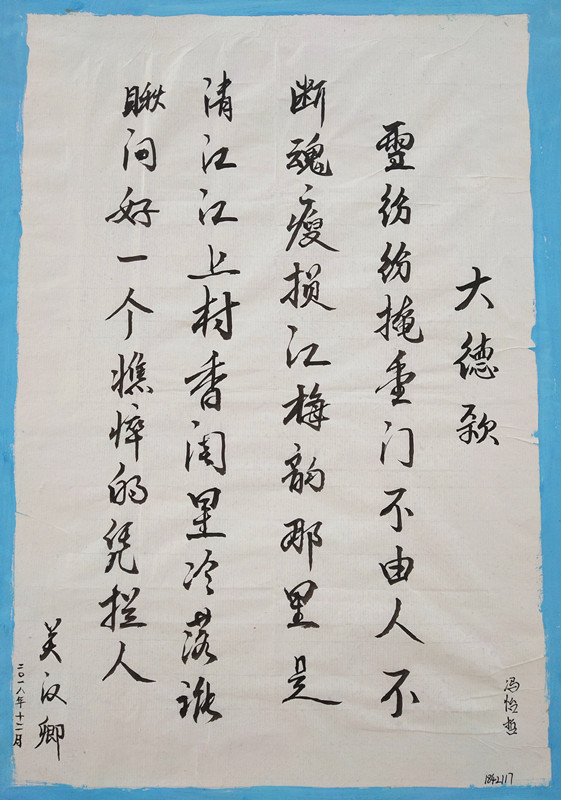 大德歌
雪纷纷掩重门不由人不
断魂瘦损江梅韵那里是
清江江上村香闺里冷落谁
瞅问好一个憔悴的凭栏人
关汉卿
二〇一八年十二月
冯怡
1842117